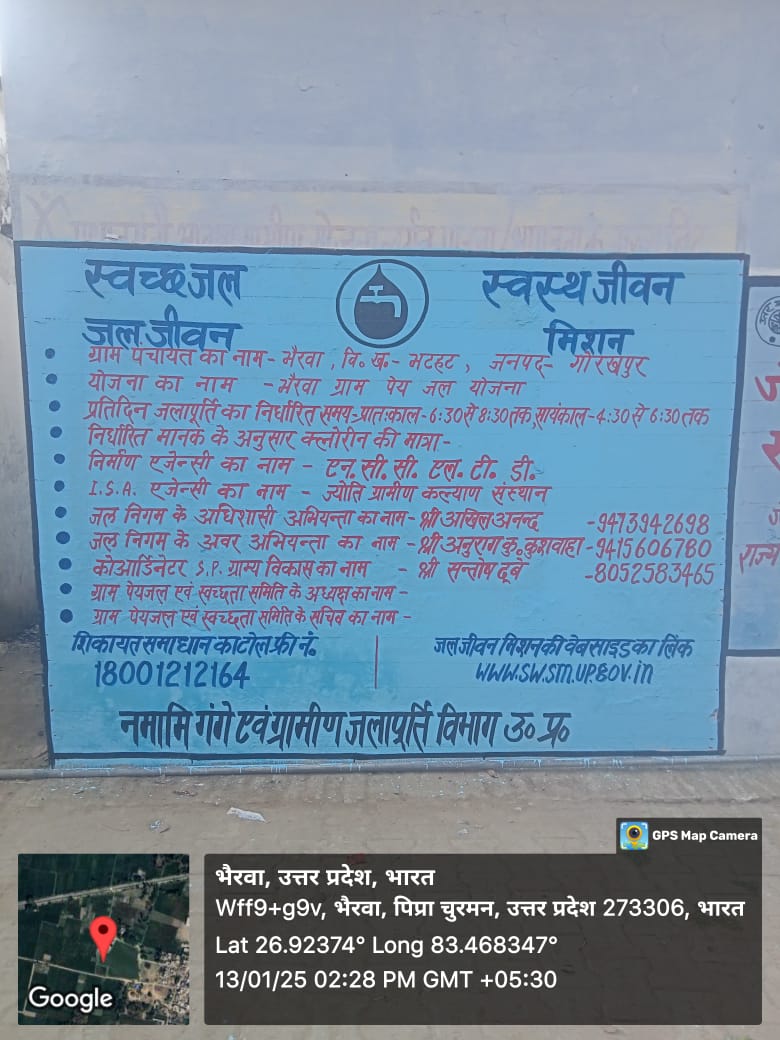 स्वच्छ जल
स्वस्थ जीवन
जल जीवन
मिशन
ग्राम पंचायत का नाम- भैरवा, वि.ख.- भटहट, जनपद- गोरखपुर
योजना का नाम - भैरवा ग्राम पेय जल योजना
प्रतिदिन जलापूर्ति का निर्धारित समय-प्रातःकाल-6:30 से 8:30 तक, सायंकाल-4:30 से 6:30 तक
निर्धारित मानक के अनुसार क्लोरीन की मात्रा-
निर्माण एजेन्सी का नाम - एन. सी. सी. एल. टी. डी.
I.S.A. एजेन्सी का नाम - ज्योति ग्रामीण कल्याण संस्थान
जल निगम के अधिशासी अभियन्ता का नाम- श्री अखिल आनन्द -9473942698
जल निगम के अवर अभियन्ता का नाम - श्री अनुराग कु. कुशवाहा -9415606780
कोआर्डिनेटर S.P. ग्राम्य विकास का नाम - श्री सन्तोष दूबे -8052583465
ग्राम पेयजल एवं स्वच्छता समिति के अध्यक्ष का नाम-
ग्राम पेयजल एवं स्वच्छता समिति के सचिव का नाम-
शिकायत समाधान का टोल फ्री नं.
18001212164
जल जीवन मिशन की वेबसाइड का लिंक
WWW.SWSM.UP.GOV.in
नमामि गंगे एवं ग्रामीण जलापूर्ति विभाग उ० प्र०
राज्य
GPS Map Camera
भैरवा, उत्तर प्रदेश, भारत
Wff9+g9v, भैरवा, पिप्रा चुरमन, उत्तर प्रदेश 273306, भारत
Lat 26.92374° Long 83.468347°
13/01/25 02:28 PM GMT +05:30
Google